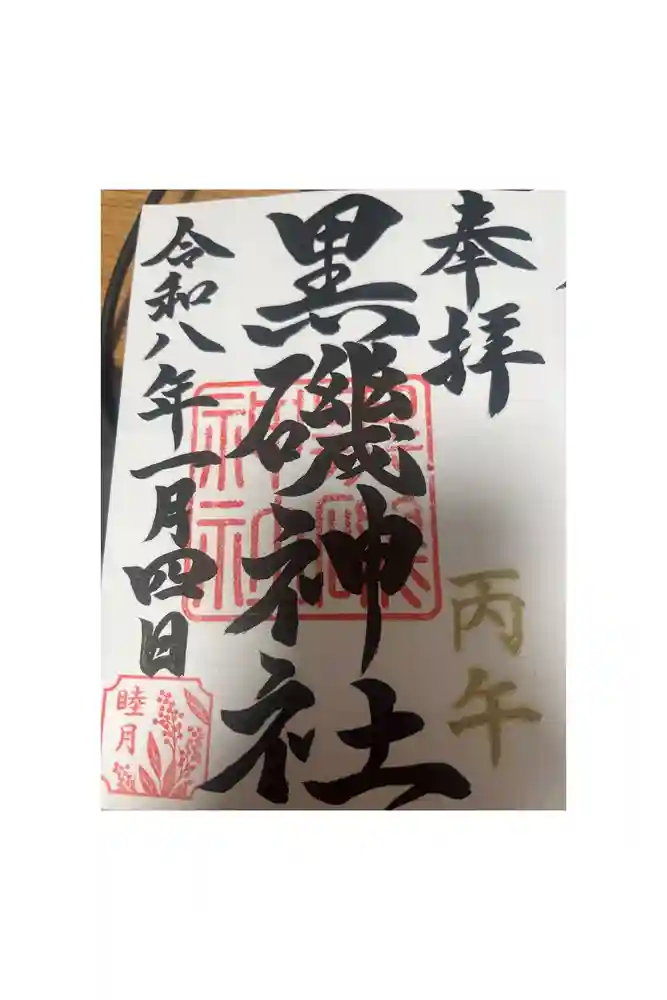 奉拝
丙午
黒磯神社
黒磯神社
令和八年一月四日
睦月